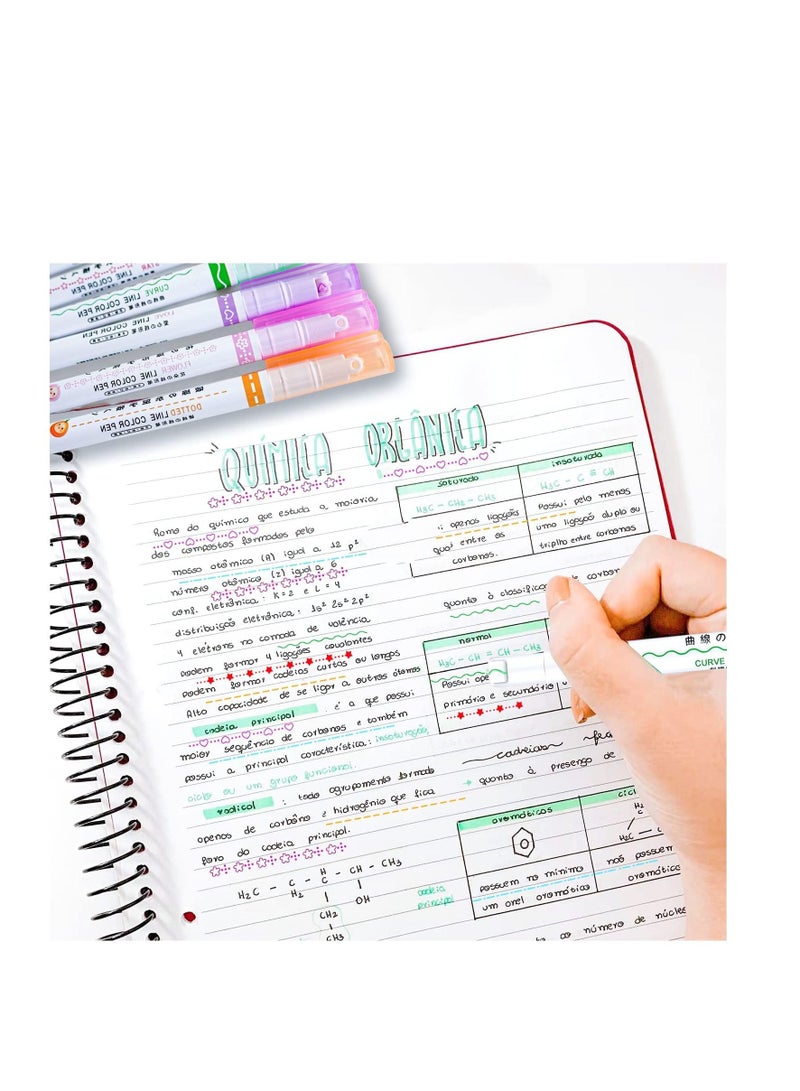 STAR LINE COLOR PEN
CURVE LINE COLOR PEN
LOVE LINE COLOR PEN
FLOWER LINE COLOR PEN
DOTTED LINE COLOR PEN
QUÍMICA ORGÂNICA
Ramo da química que estuda a maioria
dos compostos formados pelo
massa atômica (A) igual a 12 p²
número atômico (z) igual a 6
conf. eletrônica: K=2 e L=4
distribuição eletrônica: 1s² 2s² 2p²
4 elétrons na camada de valência
podem formar 4 ligações covalentes
podem formar cadeias curtas ou longas
Alta capacidade de se ligar a outros átomos
cadeia principal: é a que possui
maior sequência de carbonos e também
possui a principal característica: insaturação,
ciclo ou um grupo funcional.
radical: todo agrupamento formado
apenas de carbono e hidrogênio que fica
fora da cadeia principal.
H₂C - C - C - CH - CH₃
H₂ H
CH₂ OH
CH₃
cadeia
principal
saturada
H₃C - CH₂ - CH₃
apenas ligações
entre os
carbonos.
insaturada
H₃C - C ≡ CH
Possui pelo menos
uma ligação dupla ou
tripla entre carbonos
quanto à
normal
H₃C - CH = CH - CH₃
Possui
primário e secundário
曲線の
CURVE
cadeias
→ quanto à presença de
aromáticos
possuem no mínimo
um anel aromático
H₂
H₂C - C
não possuem
aromático
ao número de